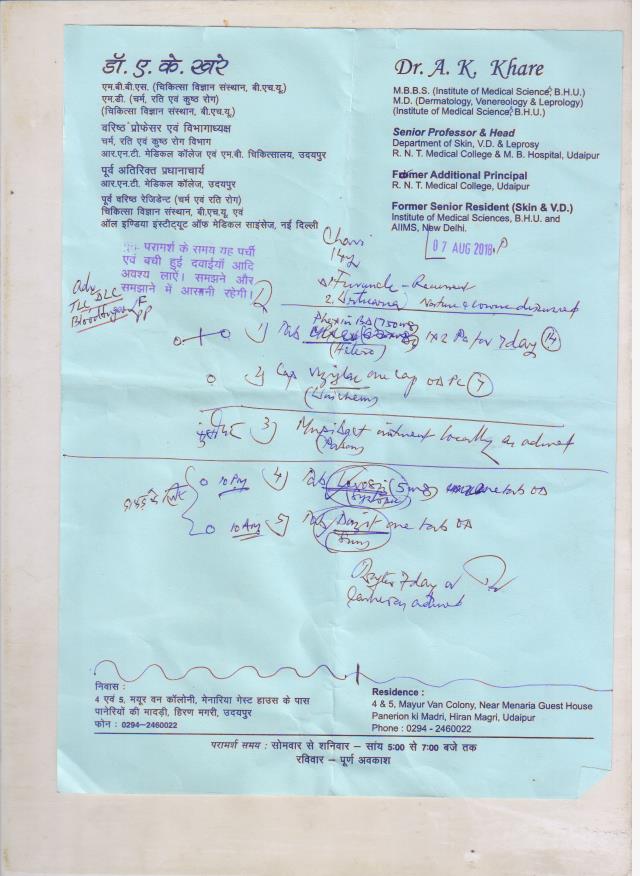 डॉ. ए. के. खरे
एम.बी.बी.एस. (चिकित्सा विज्ञान संस्थान, बी.एच.यू.)
एम.डी. (चर्म, रति एवं कुष्ठ रोग)
(चिकित्सा विज्ञान संस्थान, बी.एच.यू.)
वरिष्ठ प्रोफेसर एवं विभागाध्यक्ष
चर्म, रति एवं कुष्ठ रोग विभाग
आर.एन.टी. मेडिकल कॉलेज एवं एम.बी. चिकित्सालय, उदयपुर
पूर्व अतिरिक्त प्रधानाचार्य
आर.एन.टी. मेडिकल कॉलेज, उदयपुर
पूर्व वरिष्ठ रेजिडेंट (चर्म एवं रति रोग)
चिकित्सा विज्ञान संस्थान, बी.एच.यू. एवं
ऑल इण्डिया इंस्टीट्यूट ऑफ मेडिकल साइंसेज, नई दिल्ली
Dr. A. K. Khare
M.B.B.S. (Institute of Medical Science, B.H.U.)
M.D. (Dermatology, Venereology & Leprology)
(Institute of Medical Science, B.H.U.)
Senior Professor & Head
Department of Skin, V.D. & Leprosy
R. N. T. Medical College & M. B. Hospital, Udaipur
Former Additional Principal
R. N. T. Medical College, Udaipur
Former Senior Resident (Skin & V.D.)
Institute of Medical Sciences, B.H.U. and
AIIMS, New Delhi.
07 AUG 2018
परामर्श के समय यह पर्ची
एवं बची हुई दवाईयाँ आदि
अवश्य लाएँ। समझने और
समझाने में आसानी रहेगी।
14y
Furuncle - Recurrent
2. Urticaria
Adv
TLC DLC
Blood Sugar F
PP
1) Tab Phexin BD (750mg) for 7 day 14
2) Cap one cap OD PC 7
3) ointment locally as advised
4) Tab (5mg) one tab OD
5) Tab one tab OD
After 7 day or
earlier as advised
निवास :
4 एवं 5, मयूर वन कॉलोनी, मेनारिया गेस्ट हाउस के पास
पानेरियों की मादड़ी, हिरण मगरी, उदयपुर
फोन : 0294-2460022
Residence :
4 & 5, Mayur Van Colony, Near Menaria Guest House
Panerion ki Madri, Hiran Magri, Udaipur
Phone : 0294 - 2460022
परामर्श समय : सोमवार से शनिवार – सांय 5:00 से 7:00 बजे तक
रविवार – पूर्ण अवकाश